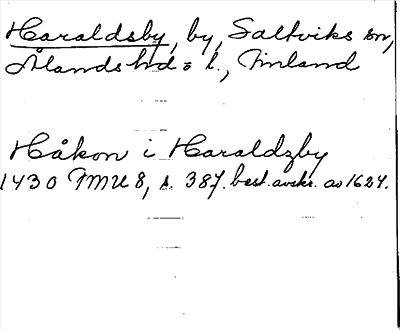 Haraldsby, by, Saltviks sn,
Ålands hd o l., Finland
Håkon i Haraldzby
1430 FMU 8, s. 387. best. avskr. av 1624.